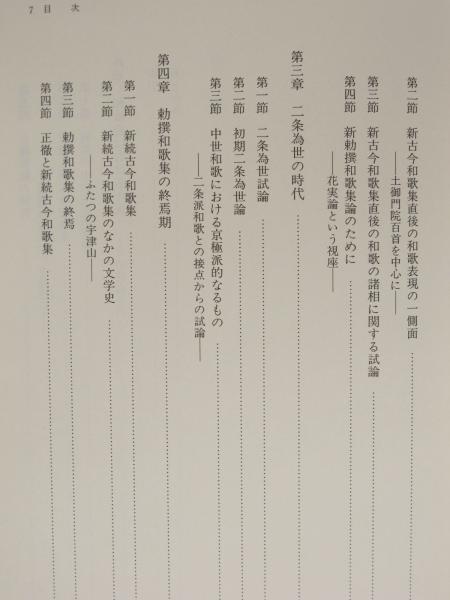 7 目 次
第二節 新古今和歌集直後の和歌表現の一側面……………
――土御門院百首を中心に――
第三節 新古今和歌集直後の和歌の諸相に関する試論……………
第四節 新勅撰和歌集論のために……………
――花実論という視座――
第三章 二条為世の時代
第一節 二条為世試論……………
第二節 初期二条為世論……………
第三節 中世和歌における京極派的なるもの……………
――二条派和歌との接点からの試論――
第四章 勅撰和歌集の終焉期……………
第一節 新続古今和歌集……………
第二節 新続古今和歌集のなかの文学史……………
――ふたつの宇津山――
第三節 勅撰和歌集の終焉……………
第四節 正徹と新続古今和歌集……………